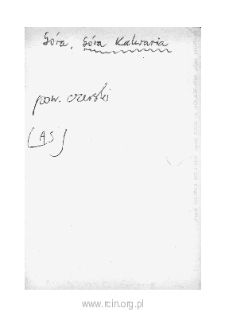 Góra, Góra Kalwaria
pow. czerski
(AS)
www.rcin.org.pl